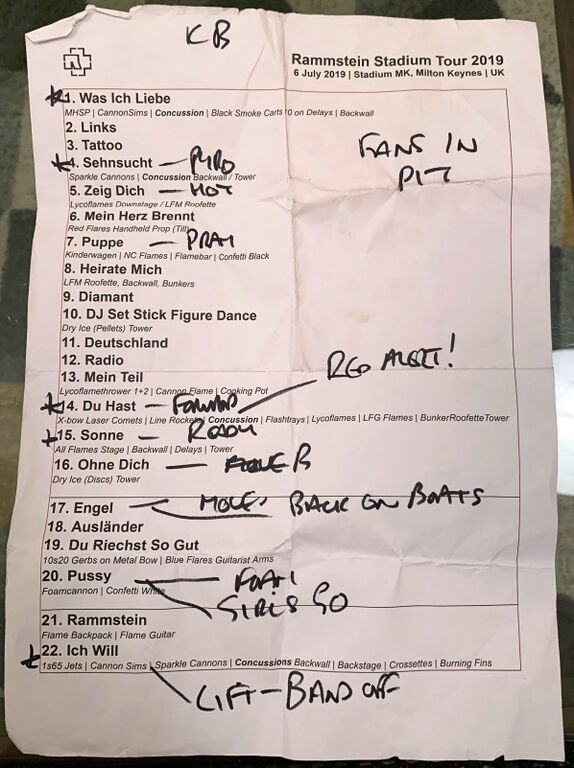 KB
Rammstein Stadium Tour 2019
6 July 2019 | Stadium MK, Milton Keynes | UK
1. Was Ich Liebe
MHSP | CannonSims | Concussion | Black Smoke Carts 0 on Delays | Backwall
2. Links
3. Tattoo
FANS IN
PIT
4. Sehnsucht — PYRO
Sparkle Cannons | Concussion Backwall / Tower
5. Zeig Dich — HOT
Lycoflames Downstage / LFM Roofette
6. Mein Herz Brennt
Red Flares Handheld Prop (Till)
7. Puppe — PRAM
Kinderwagen | NC Flames | Flamebar | Confetti Black
8. Heirate Mich
LFM Roofette, Backwall, Bunkers
9. Diamant
10. DJ Set Stick Figure Dance
Dry Ice (Pellets) Tower
11. Deutschland
12. Radio
RED ALERT!
13. Mein Teil
Lycoflamethrower 1+2 | Cannon Flame | Cooking Pot
14. Du Hast — FORWARD
X-bow Laser Comets | Line Rockets | Concussion | Flashtrays | Lycoflames | LFG Flames | BunkerRoofetteTower
15. Sonne — READY
All Flames Stage | Backwall | Delays | Tower
16. Ohne Dich — B
Dry Ice (Discs) Tower
17. Engel — BACK ON BOATS
18. Ausländer
19. Du Riechst So Gut
10s20 Gerbs on Metal Bow | Blue Flares Guitarist Arms
20. Pussy — FOAM
Foamcannon | Confetti White
GIRLS GO
21. Rammstein
Flame Backpack | Flame Guitar
22. Ich Will
1s65 Jets | Cannon Sims | Sparkle Cannons | Concussions Backwall | Backstage | Crossettes | Burning Fins
LIFT - BAND OFF